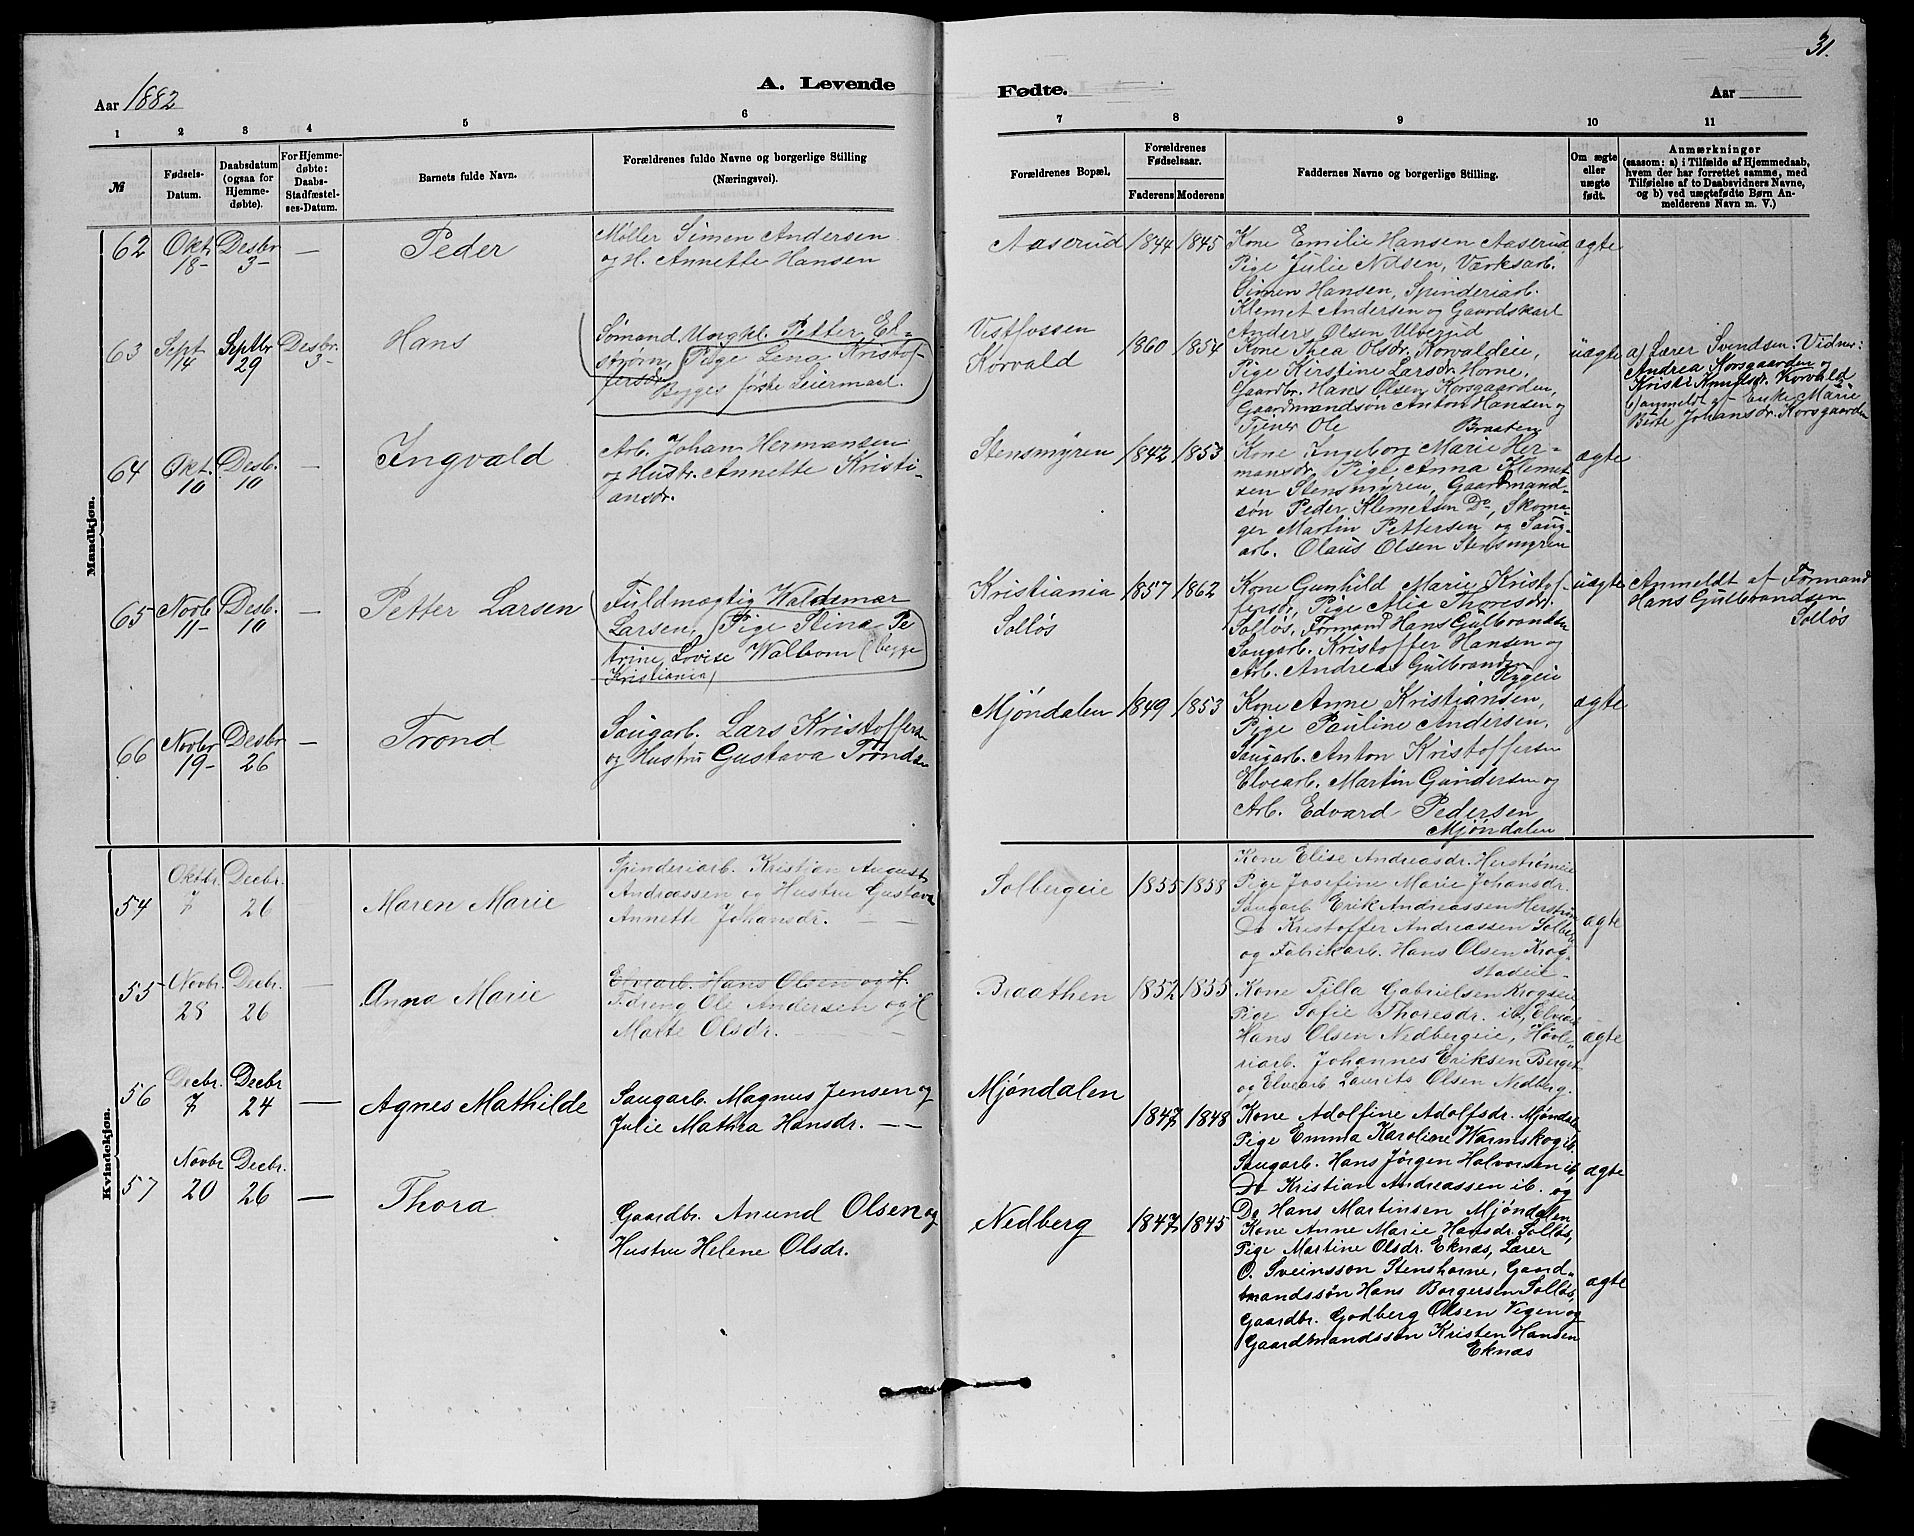 31.
Aar 1882
A. Levende
Fødte.
Aar
1 2 3 4 5 6 7 8 9 10 11
№
Fødsels-Datum.
Daabsdatum (ogsaa for Hjemme-døbte).
For Hjemme-døbte: Daabs-Stadfæstel-ses-Datum.
Barnets fulde Navn.
Forældrenes fulde Navne og borgerlige Stilling
(Næringsvei).
Forældrenes Bopæl.
Forældrenes Fødselsaar.
Faderens Moderens
Faddernes Navne og borgerlige Stilling.
Om ægte eller uægte født.
Anmærkninger
(saasom: a) i Tilfælde af Hjemmedaab,
hvem der har forrettet samme, med
Tilføielse af to Daabsvidners Navne,
og b) ved uægtefødte Børn An-
melderens Navn m. V.)
Mandkjøn.
62 Okt. 18- Desbr 3- — Peder
Møller Simen Andersen
og H. Annette Hansen
Aaserud 1844 1845
Kone Emilie Hansen Aaserud,
Pige Julie Nilsen, Værksarb.
Simen Hansen, Spinderiarb.
Klemet Andersen og Gaardskarl
Anders Olsen Ulberud
ægte
63 Sept 14 Septbr 29 Desbr. 3- Hans
Sømand Ungkl. Petter Ek-
strøm, Pige Lena Kristof-
fersdr.
Begges første Leiermaal.
Vestfossen
Korvald
1860 1854
Kone Thea Olsdr. Korvaldeie,
Pige Kirstine Larsdr. Horne,
Gaardbr. Hans Olsen Korsgaarden,
Gaardmandsøn Anton Hansen og
Tjener Ole Braaten
uægte
a) Lærer Svendsen. Vidner:
Andrea Korsgaarden og
Kristi Knudsdr. Korvald
b) anmeldt af Enke Marie
Birte Johansdr. Korsgaarden
64 Okt. 10 Desb. 10 — Ingvald
Arb. Johan Hermansen
og Hustr. Annette Kristi-
ansdr.
Stensmyren 1842 1853
Kone Ingeborg Marie Her-
mansdr, Pige Anna Klemet-
sen Stensmyren, Gaardmand-
søn Peder Klemetsen Do, Skoma-
ger Martin Pettersen og Saug-
arb. Olaus Olsen Stensmyren
ægte
65 Novb. 11- Desb. 10 — Petter Larsen
Fuldmægtig Waldemar
Larsen, Pige Stina Pe
trine Lovise Walbom (begge
Kristiania)
Kristiania
Solløs
1857 1862
Kone Gunhild Marie Kristof-
fersdr, Pige Mia Thoresdr.
Solløs, Formand Hans Gulbrandsen
Saugarb. Kristoffer Hansen og
Arb. Andreas Gulbrandsen
Rygeie
uægte
Anmeldt af Formand
Hans Gulbrandsen
Solløs
66 Novbr 19- Desbr 26 — Trond
Saugarb. Lars Kristoffersen
og Hustru Gustava Trondsen
Mjøndalen 1849 1853
Kone Anne Kristiansen,
Pige Pauline Andersen,
Saugarb. Anton Kristoffersen
Elvearb. Martin Gundersen og
Arb. Edvard Pedersen
Mjøndalen
ægte
Kvindekjøn.
54 Oktbr. 7 Decbr. 26 — Maren Marie
Spinderiarb. Kristian August
Andreassen og Hustru Gustava
Annette Johansdr. — —
Solbergeie 1855 1858
Kone Elise Andreasdr. Herstrømeie
Pige Josefine Marie Johansdr.
Saugarb. Erik Andreassen Herstrøm
Do Kristoffer Andreassen Solberg
og Fabrikarb. Hans Olsen Krog-
stadeie-
ægte
55 Novbr. 28 Decbr. 26 — Anna Marie
Elvearb. Hans Olsen og H.
Tidreng Ole Andersen og H
Marte Olsdr. —
Braathen 1852 1855
Kone Tilla Gabrielsen Krogseie,
Pige Sofie Thoresdr. ib, Elvearb
Hans Olsen Nedbergeie, Høvle-
riarb. Johannes Eriksen Berget
og Elvearb Laurits Olsen Nedberg.
ægte
56 Decbr. 7 Decbr 24 — Agnes Mathilde
Saugarb. Magnus Jensen og
Julie Mathea Hansdr. — —
Mjøndalen
1847 1848
Kone Adolfine Adolfsdr. Mjøndalen
Pige Emma Karoline Warmskog ib.
Saugarb. Hans Jørgen Halvorsen ib,
Do Kristian Andreassen ib. og
Do Hans Martinsen Mjøndalen
ægte
57 Novbr 20 Decbr. 26 — Thora
Gaardbr. Anund Olsen og
Hustru Helene Olsdr.
Nedberg 1847 1845
Kone Anne Marie Hansdr. Solløs,
Pige Martine Olsdr. Eknæs, Lærer
O. Sveinsson Stenshorne, Gaard-
mandssøn Hans Borgersen Solløs,
Gaardbr. Godberg Olsen Vegen og
Gaardmandssøn Kristen Hansen
Eknæs
ægte